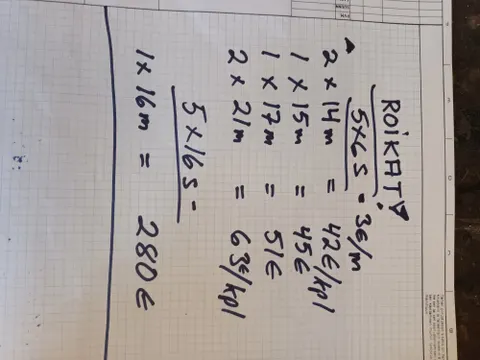 ROIKAT!
5x6 S - 3€/m
2 x 14m = 42€/kpl
1 x 15m = 45€
1 x 17m = 51€
2 x 21m = 63€/kpl
5 x 16 S -
1 x 16m = 280€